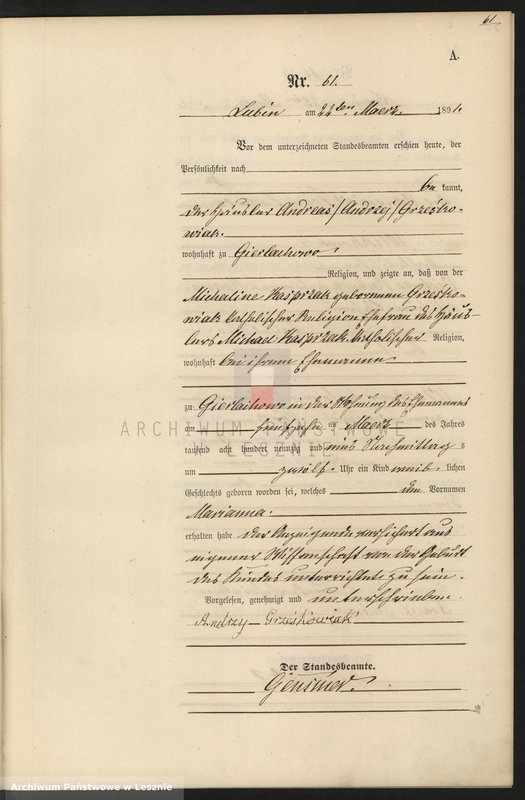 61
A.
Nr. 61.
Lubin am 22ten Maerz 1891.
Vor dem unterzeichneten Standesbeamten erschien heute, der
Persönlichkeit nach
be kannt,
der Häusler Andreas /Andrzej/ Grześko-
wiak.
wohnhaft zu Gierlachowo,
Religion, und zeigte an, daß von der
Micheline Kasprzak geborenen Grześko-
wiak katholischer Religion Ehefrau des Häus-
lers Michael Kasprzak. katholischer Religion,
wohnhaft bei ihrem Ehemanne
zu Gierlachowo in der Wohnung des Ehemannes
am fünfzehn ten Maerz des Jahres
tausend acht hundert neunzig und eins Nachmittag s
um zwölf Uhr ein Kind weib lichen
Geschlechts geboren worden sei, welches den Vornamen
Marianna.
erhalten habe. der Anzeigende versichert aus
eigener Wissenschaft von der Geburt
des Kindes unterrichtet zu sein.
Vorgelesen, genehmigt und unterschrieben.
Andrzy Grześkowiak
Der Standesbeamte.
ARCHIWUM PAŃSTWOWE
W LESZNIE
Archiwum Państwowe w Lesznie